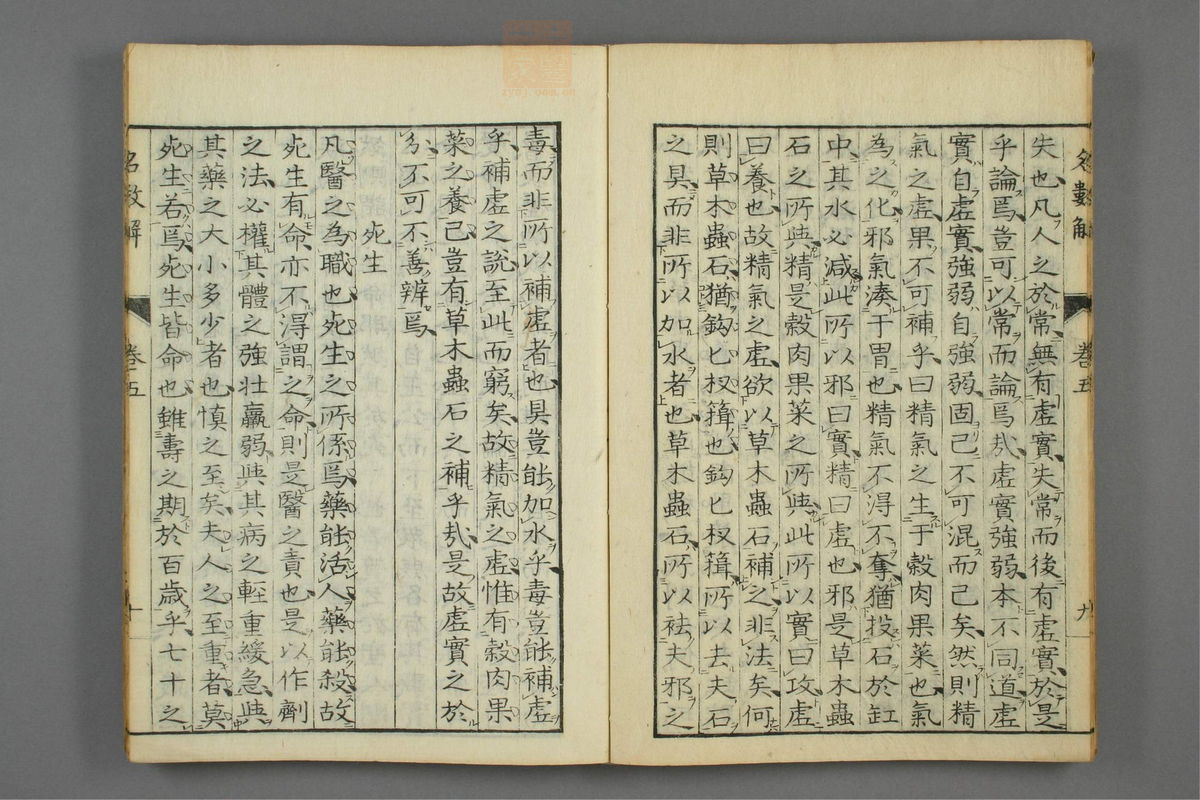 失也凡人之於常無有虛實失常而後有虛實於是
乎論焉豈可以常而論焉㢤虛實強弱本不同道虛
實自虛實強弱自強弱固已不可混而已矣然則精
氣之虛果不可補乎曰精氣之生于穀肉果菜也氣
為之化邪氣湊于胃也精氣不得不奪猶投石於缸
中其水必減此所以邪曰實精曰虛也邪是草木蟲
石之所與精是穀肉果菜之所與此所以實曰攻虛
曰養也故精氣之虛欲以草木蟲石補之非法矣何
則草木蟲石猶鈎匕杈箝也鈎匕杈箝所以去夫石
之具而非所以加水者也草木蟲石所以袪夫邪之
卷五
九
毒而非所以補虛者也具豈能加水乎毒豈能補虛
乎補虛之說至此而窮矣故精氣之虛惟有穀肉果
菜之養已豈有草木蟲石之補乎㢤是故虛實之於
分不可不善辨焉
死生
凡醫之為職也死生之所係焉藥能活人藥能殺故
死生有命亦不得謂之命則是醫之責也是以作劑
之法必權其體之強壯羸弱與其病之輕重緩急與
其藥之大小多少者也慎之至矣夫人之至重者莫
死生若焉死生皆命也雖壽之期於百歲乎七十之
名數解
卷五
十